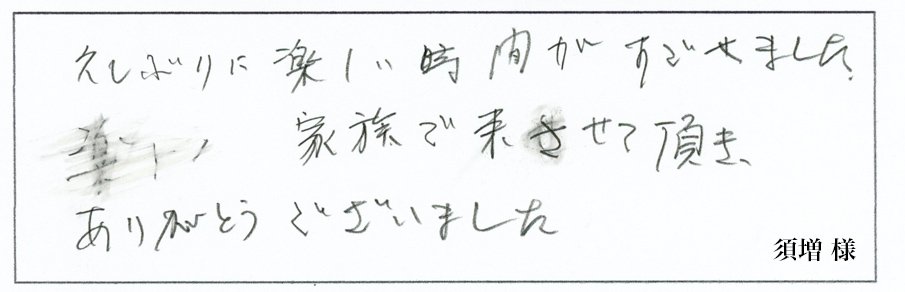 久しぶりに楽しい時間がすごせました。
家族で来させて頂き、
ありがとうございました
須増 様